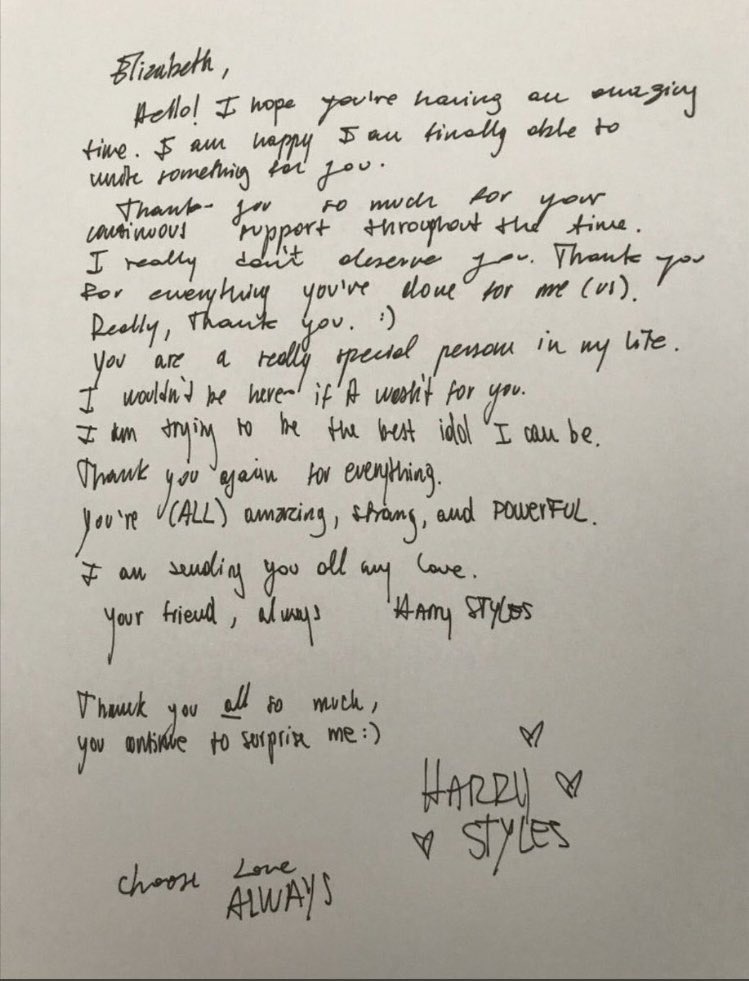 Elizabeth,
Hello! I hope you're having an amazing
time. I am happy I am finally able to
write something for you.
Thank you so much for your
continuous support throughout the time.
I really don't deserve you. Thank you
for everything you've done for me (us).
Really, Thank you. :)
You are a really special person in my life.
I wouldn't be here if it wasn't for you.
I am trying to be the best idol I can be.
Thank you again for everything.
You're (ALL) amazing, strong, and POWERFUL.
I am sending you all my love.
your friend, always Harry STYLES
Thank you all so much,
you continue to surprise me :)
HARRY
STYLES
Choose Love
ALWAYS